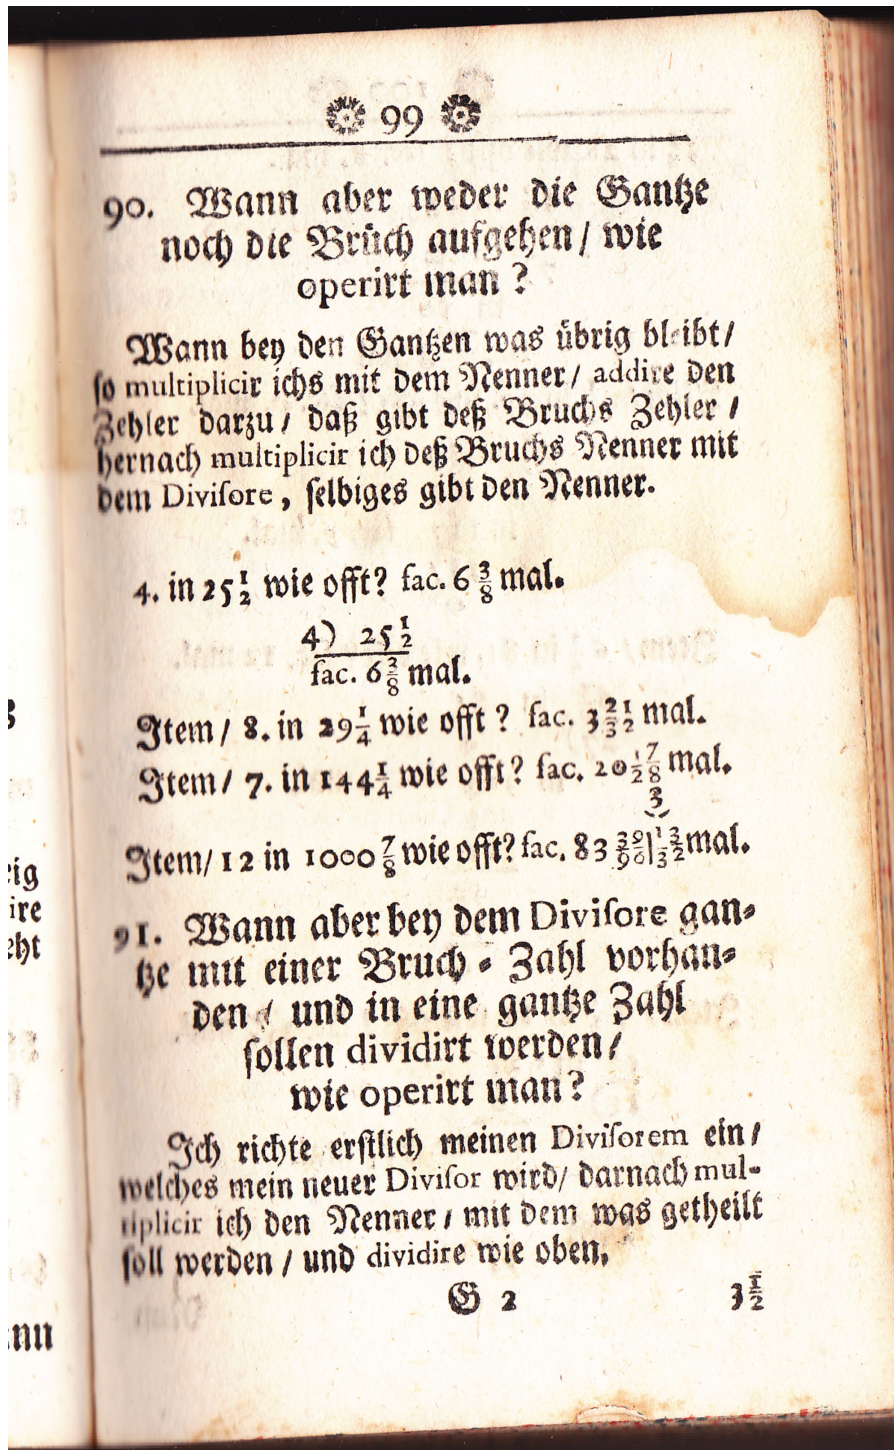 99
90. Wann aber weder die Gantze
noch die Brüch aufgehen / wie
operirt man ?
Wann bey den Gantzen was übrig bleibt /
so multiplicir ichs mit dem Nenner / addire den
Zehler darzu / daß gibt deß Bruchs Zehler /
hernach multiplicir ich deß Bruchs Nenner mit
dem Divisore , selbiges gibt den Nenner.
4. in 25 1/2 wie offt? fac. 6 3/8 mal.
4) 25 1/2
fac. 6 3/8 mal.
Item / 8. in 29 1/4 wie offt ? fac. 3 21/32 mal.
Item / 7. in 144 1/4 wie offt? fac. 20 17/28 mal.
3
Item / 12 in 1000 7/8 wie offt? fac. 83 mal.
91. Wann aber bey dem Divisore gan-
tze mit einer Bruch - Zahl vorhan-
den / und in eine gantze Zahl
sollen dividirt werden /
wie operirt man ?
Ich richte erstlich meinen Divisorem ein /
welches mein neuer Divisor wird / darnach mul-
tiplicir ich den Nenner / mit dem was getheilt
soll werden / und dividire wie oben.
G 2 3 1/2